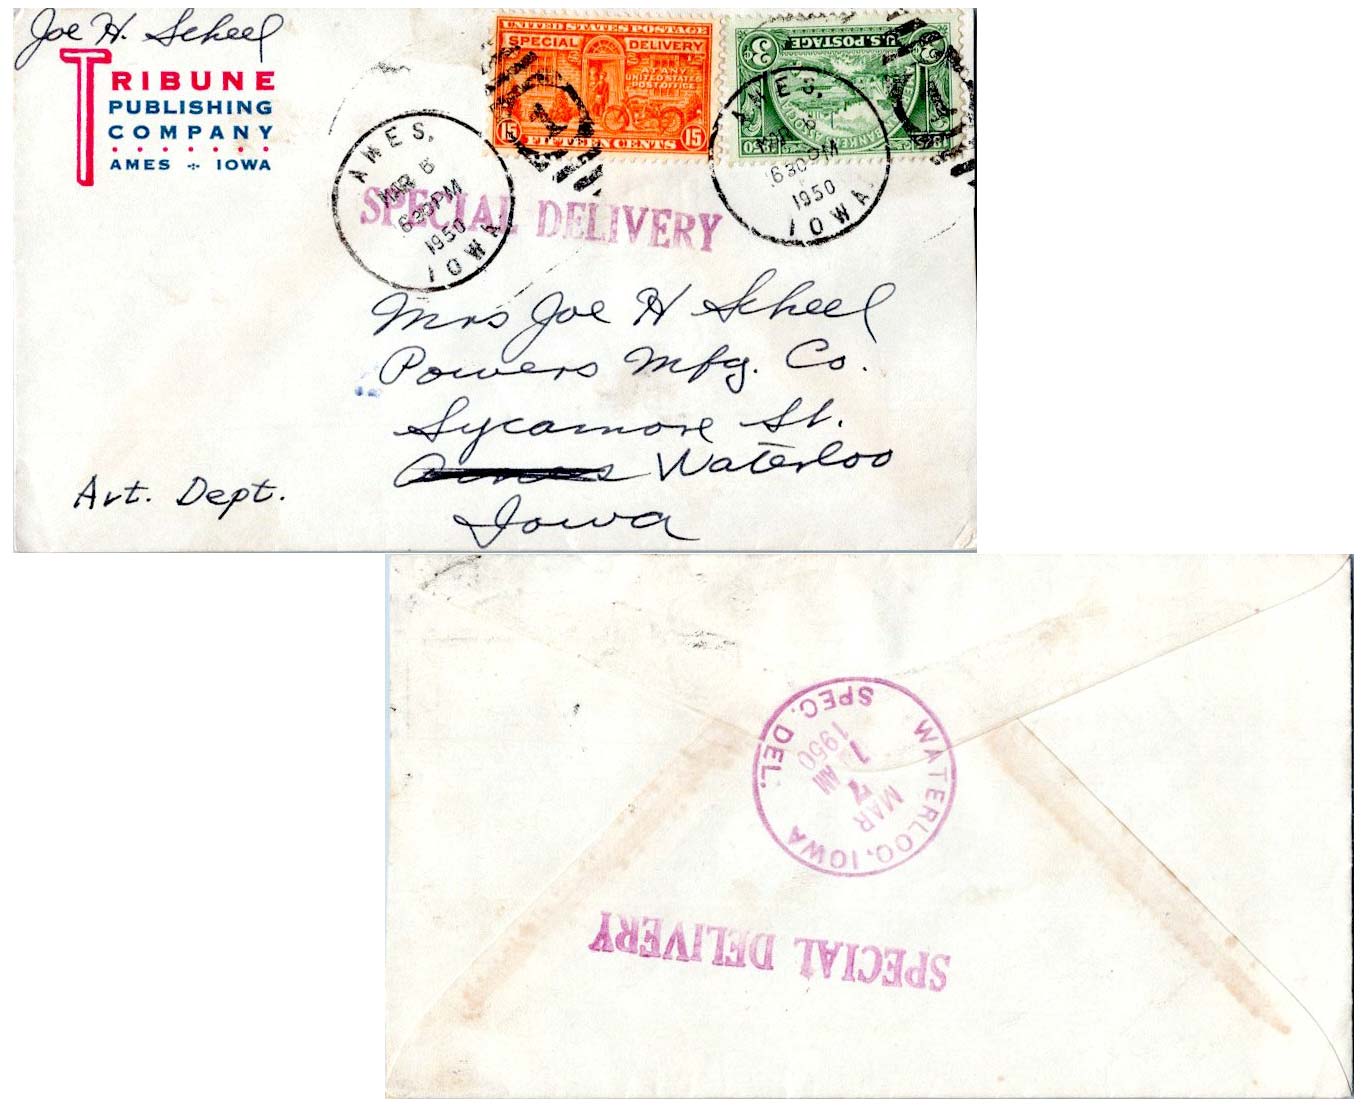 Joe H. Scheel
TRIBUNE
PUBLISHING
COMPANY
AMES IOWA
UNITED STATES POSTAGE
SPECIAL DELIVERY
AT ANY
UNITED STATES
POST OFFICE
15 FIFTEEN CENTS 15
U.S. POSTAGE
3¢
AMES,
MAR 6
630PM
1950
IOWA.
AMES,
MAR
630PM
1950
IOWA.
SPECIAL DELIVERY
Mrs Joe H Scheel
Powers Mfg. Co.
Sycamore St.
Ames Waterloo
Iowa
Art. Dept.
WATERLOO, IOWA
SPEC. DEL.
MAR
7
1 AM
1950
SPECIAL DELIVERY